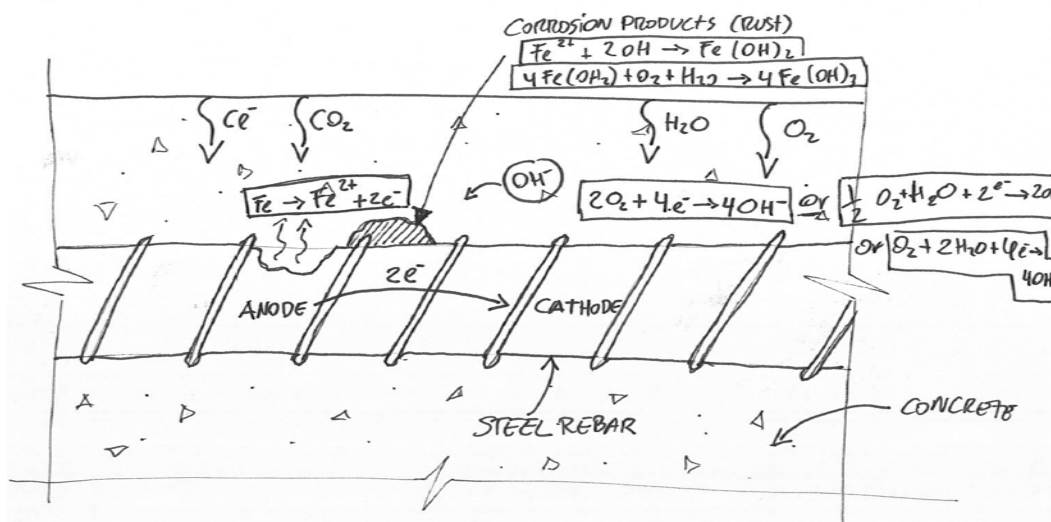 CORROSION PRODUCTS (RUST)
Fe²⁺ + 2OH → Fe(OH)₂
4Fe(OH₂) + O₂ + H₂O → 4Fe(OH)₃
Cl⁻
CO₂
H₂O
O₂
OH⁻
Fe → Fe²⁺ + 2e⁻
2O₂ + 4e⁻ → 4OH⁻ or 1/2 O₂ + H₂O + 2e⁻ → 2O
or O₂ + 2H₂O + 4e⁻ →
4OH
2e⁻
ANODE
CATHODE
STEEL REBAR
CONCRETE